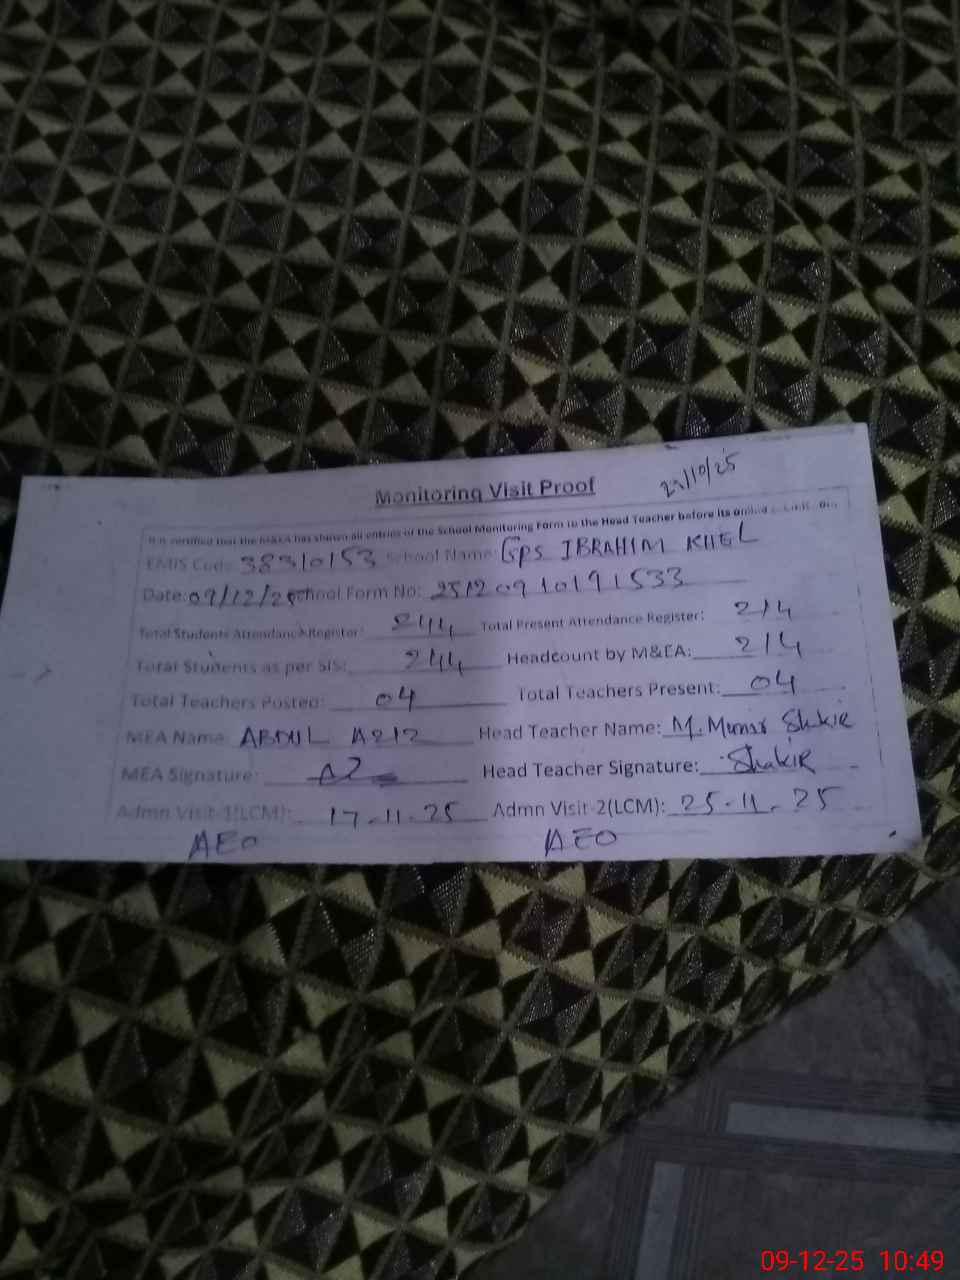 Monitoring Visit Proof
/10/25
It is certified that the M&EA has shown all entries of the School Monitoring Form to the Head Teacher before its
EMIS Code: 38310153 School Name: GPS IBRAHIM KHEL
Date: 09/12/25 School Form No: 251209 10191533
Total Students Attendance Register: 244 Total Present Attendance Register: 214
Total Students as per SIS: 244 Headcount by M&EA: 214
Total Teachers Posted: 04 Total Teachers Present: 04
MEA Name: ABDUL AZIZ Head Teacher Name: M. Munir Shakir
MEA Signature: Head Teacher Signature: Shakir
Admn Visit-1(LCM): 17-11-25 Admn Visit-2(LCM): 25-11-25
AEO AEO
09-12-25 10:49